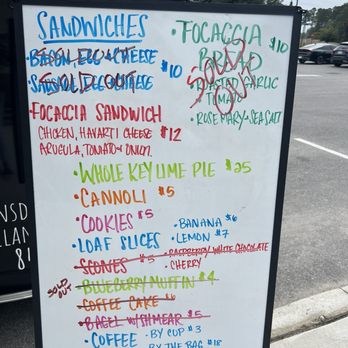 SANDWICHES
• BACON, EGG & CHEESE
SAUSAGE, EGG & CHEESE $10
SOLD OUT
FOCACCIA SANDWICH
CHICKEN, HAVARTI CHEESE $12
ARUGULA, TOMATO & ONION
• FOCACCIA BREAD $10
SOLD OUT
• ROASTED GARLIC TOMATO
• ROSEMARY & SEA SALT
• WHOLE KEY LIME PIE $25
• CANNOLI $5
• COOKIES $5
• LOAF SLICES
• BANANA $6
• LEMON $7
• SCONES $5
• RASPBERRY WHITE CHOCOLATE
• CHERRY
SOLD OUT
• BLUEBERRY MUFFIN $4
• COFFEE CAKE $6
• BAGEL W/ SHMEAR $5
• COFFEE
• BY CUP $3
• BY THE BAG $18